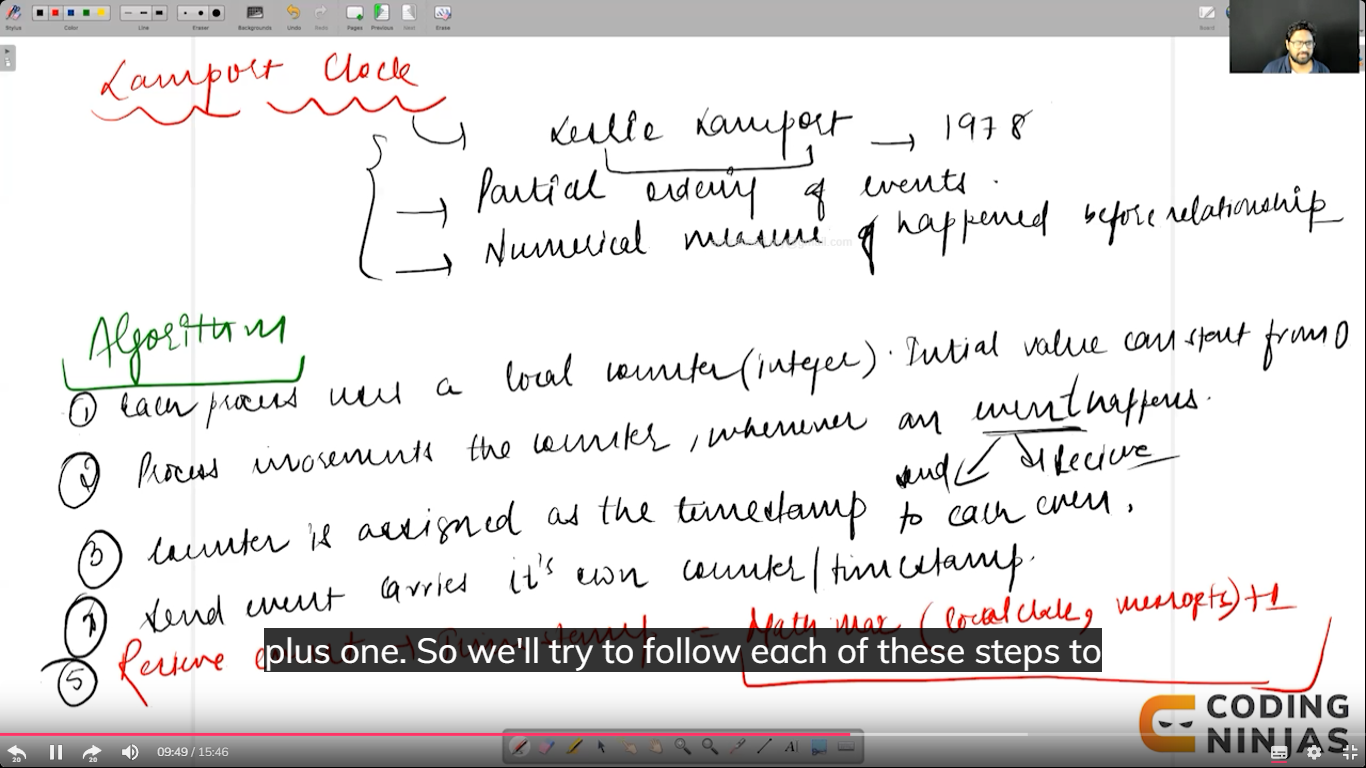 Stylus Color Line Eraser Backgrounds Undo Redo Pages Previous Next Erase Board
Lamport Clock
Leslie Lamport → 1978
→ Partial ordering of events.
→ Numerical measure of happened before relationship
Algorithm
① Each process uses a local counter (integer). Initial value can start from 0
② Process increments the counter, whenever an event happens.
send receive
③ counter is assigned as the timestamp to each event.
④ Send event carries it's own counter/timestamp.
⑤ Receive = Math max (local clock, message ts) +1
plus one. So we'll try to follow each of these steps to
CODING
NINJAS
09:49 / 15:46
20 20